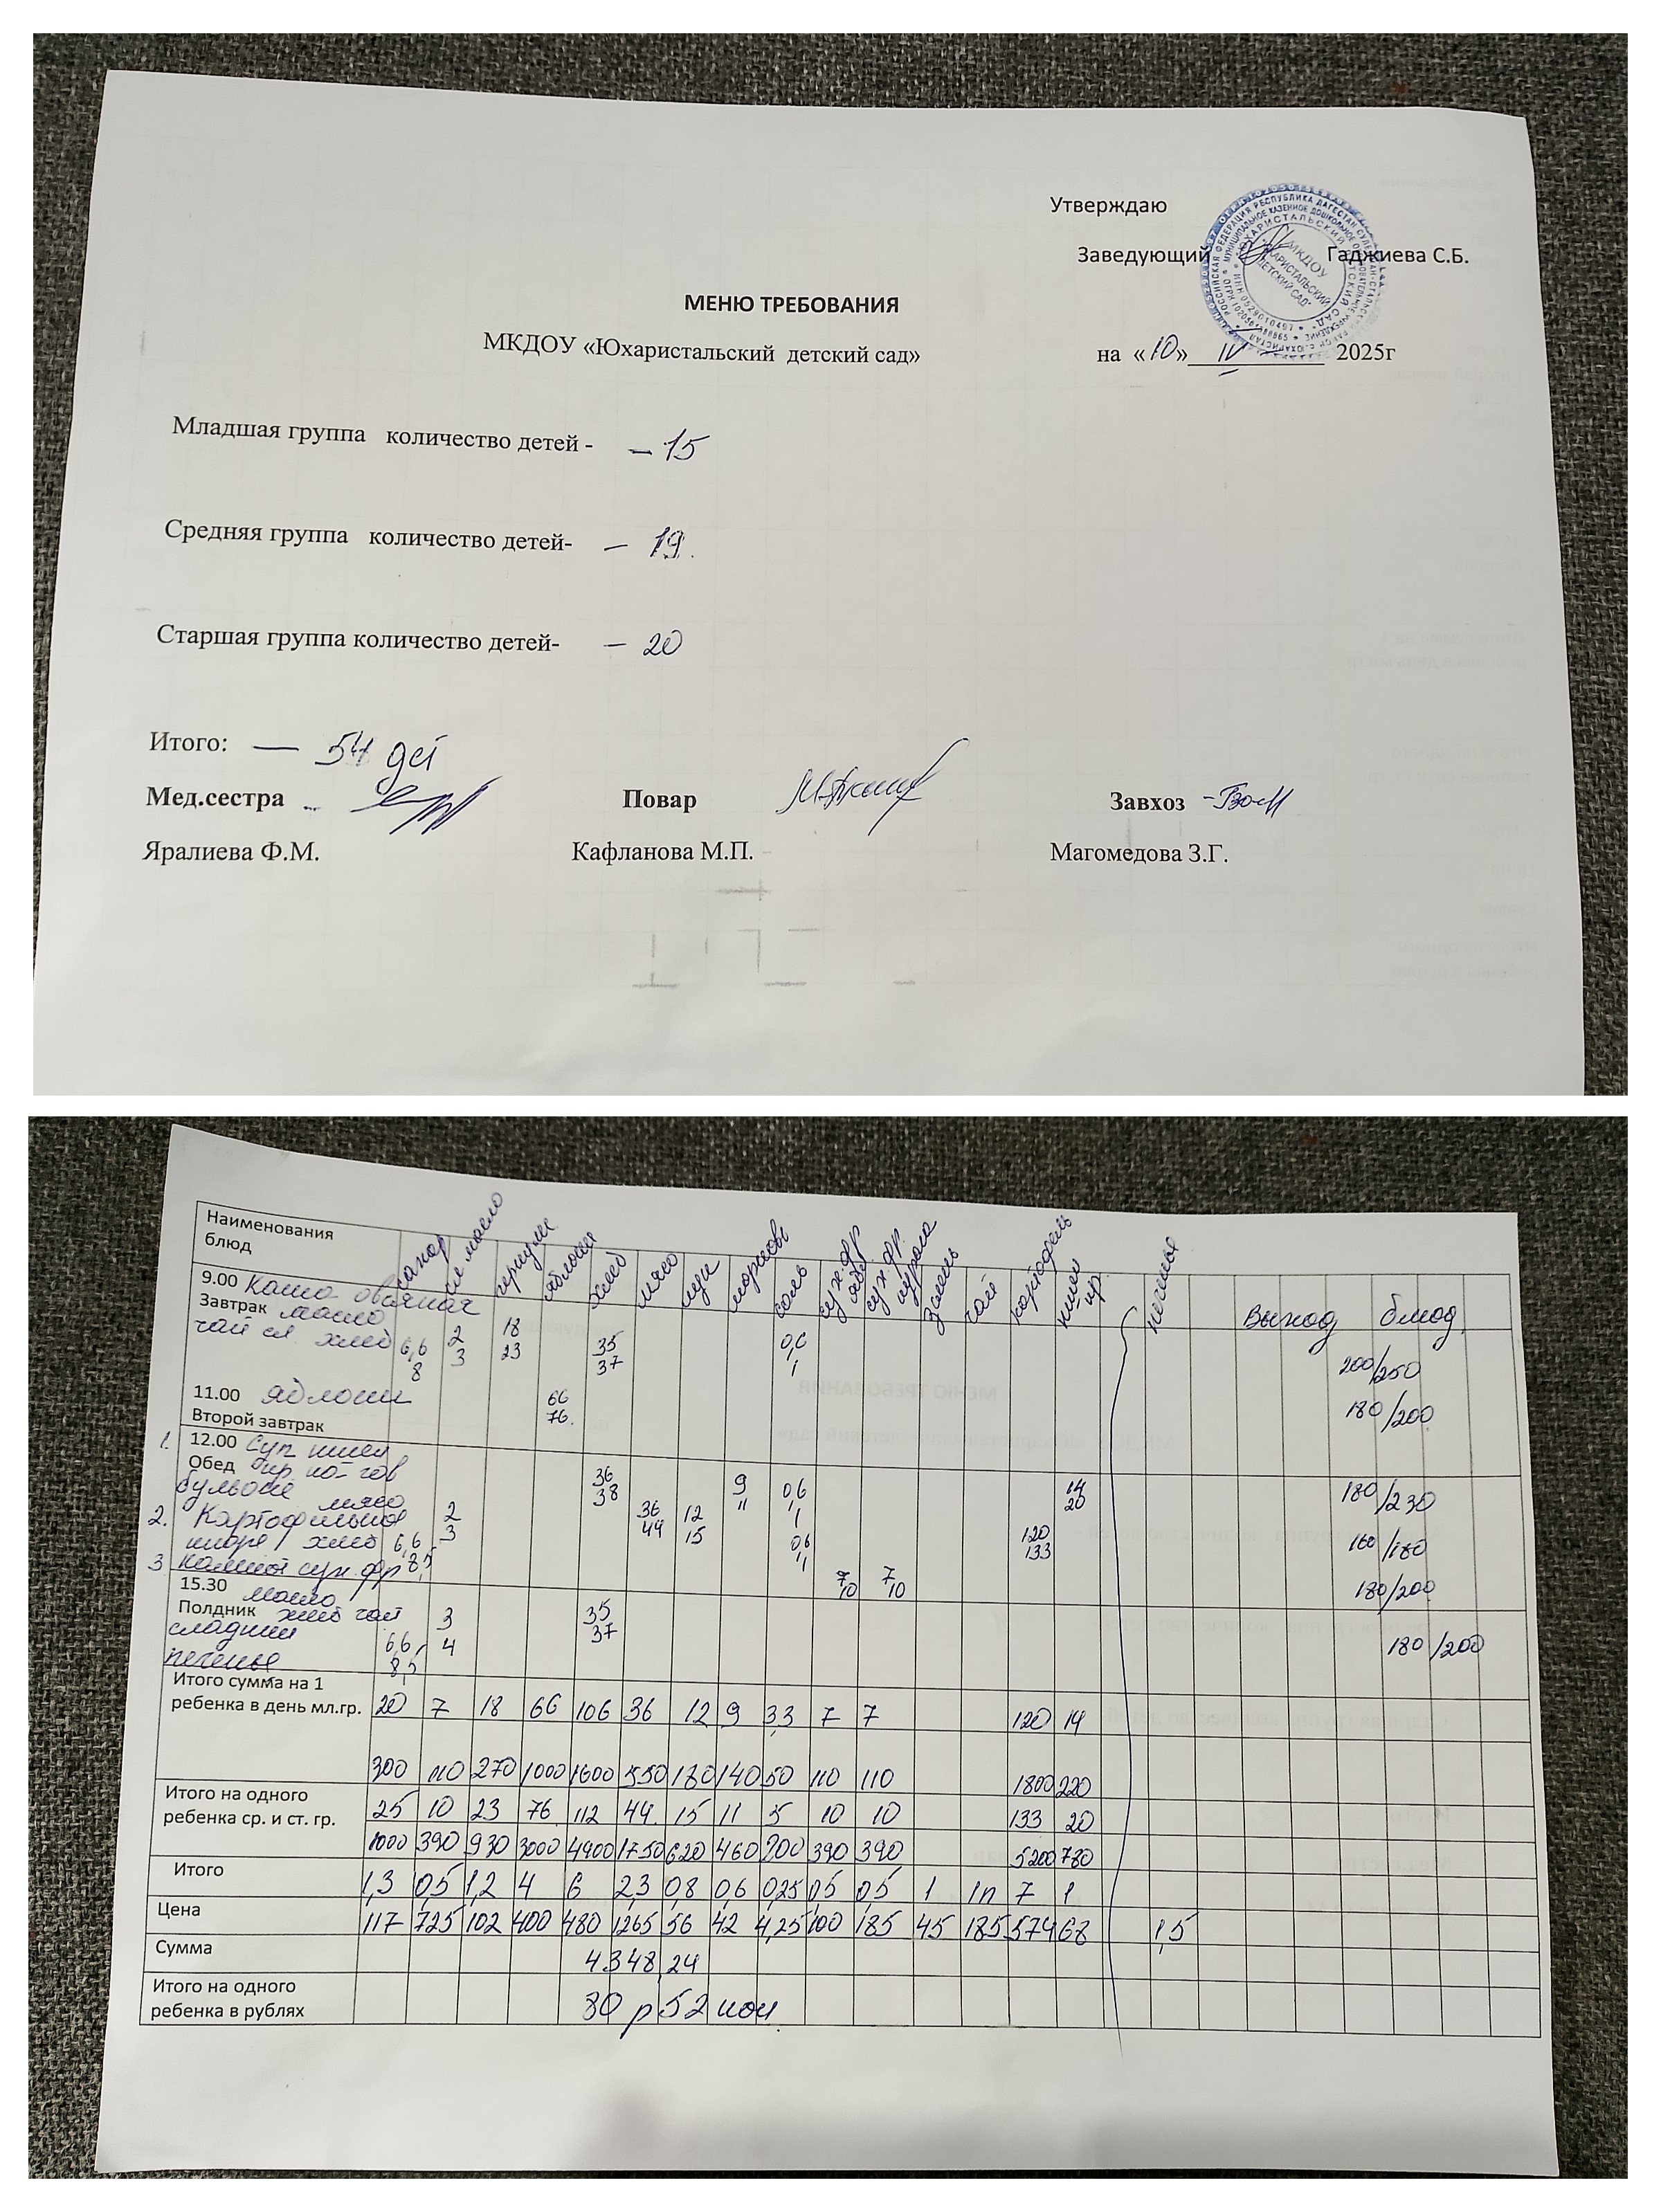 Утверждаю
Заведующий Гаджиева С.Б.
МЕНЮ ТРЕБОВАНИЯ
МКДОУ «Юхаристальский детский сад»
на «10» IV 2025г
Младшая группа количество детей - – 15
Средняя группа количество детей- – 19.
Старшая группа количество детей- – 20
Итого: — 54 дет
Мед.сестра Повар Завхоз
Яралиева Ф.М. Кафланова М.П. Магомедова З.Г.
Наименования
блюд
сахар сл масло яблоки хлеб мясо лук морковь соль сух.фр сух.фр. зелень чай картофель печенье
Выход блюд
9.00 Каша овсяная
Завтрак масло
чай сл. хлеб
6,6 2 18 35 0,6
8 3 23 37 1
200/250
11.00 яблоки 66
Второй завтрак 76.
180/200
1. 12.00 Суп
Обед
бульоне мясо
36 9 0,6 14
38 11 1 20
180/230
2. Картофельное 2 36 12
пюре хлеб 3 44 15 120
6,6 133
160/180
3 компот сух.фр 8,5 7 7
10 10
180/200
15.30 масло
Полдник хлеб чай 3 35
сладкий 6,6 4 37
печенье 8,5
180/200
Итого сумма на 1
ребенка в день мл.гр. 20 7 18 66 106 36 12 9 3,3 7 7 120 14
300 110 270 1000 1600 550 180 140 50 110 110 1800 220
Итого на одного
ребенка ср. и ст. гр. 25 10 23 76 112 44 15 11 5 10 10 133 20
1000 390 930 3000 4900 1750 620 460 200 390 390 5200 780
Итого 1,3 0,5 1,2 4 6 2,3 0,8 0,6 0,25 0,5 0,5 1 1п 7 1
Цена 117 725 102 400 480 1265 56 42 4,25 100 185 45 185 574 68 1,5
Сумма 4348,24
Итого на одного
ребенка в рублях 80 р 52 коп